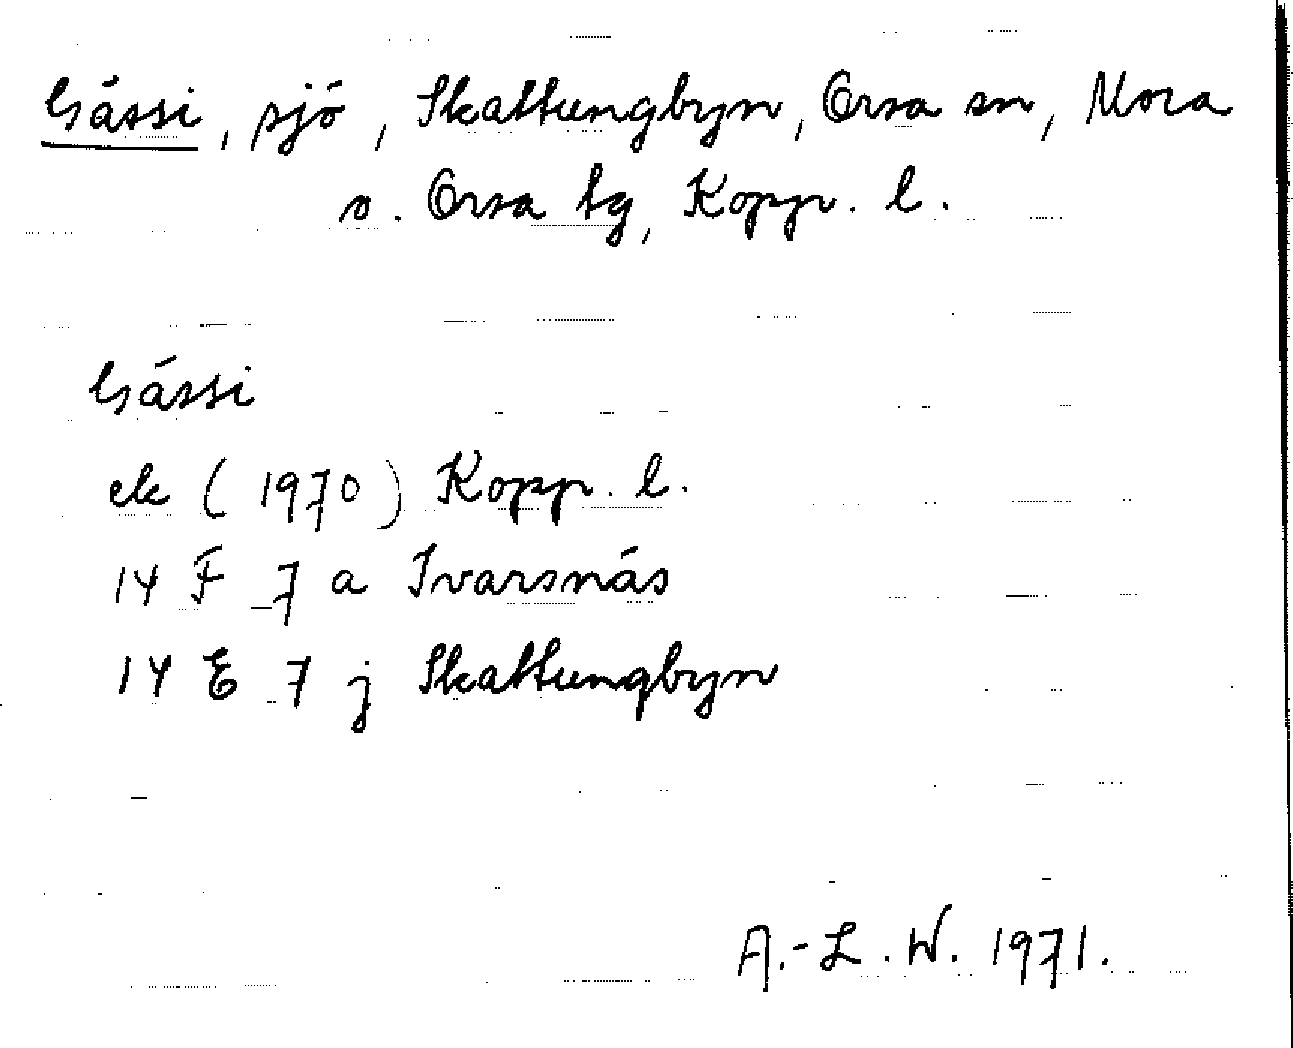 Gässi, sjö, Skattungbyn, Orsa sn, Mora
o. Orsa tg, Kopp. l.
Gässi
ek (1970) Kopp. l.
14 F 7 a Ivarsnäs
14 E 7 j Skattungbyn
A.-L.W. 1971.